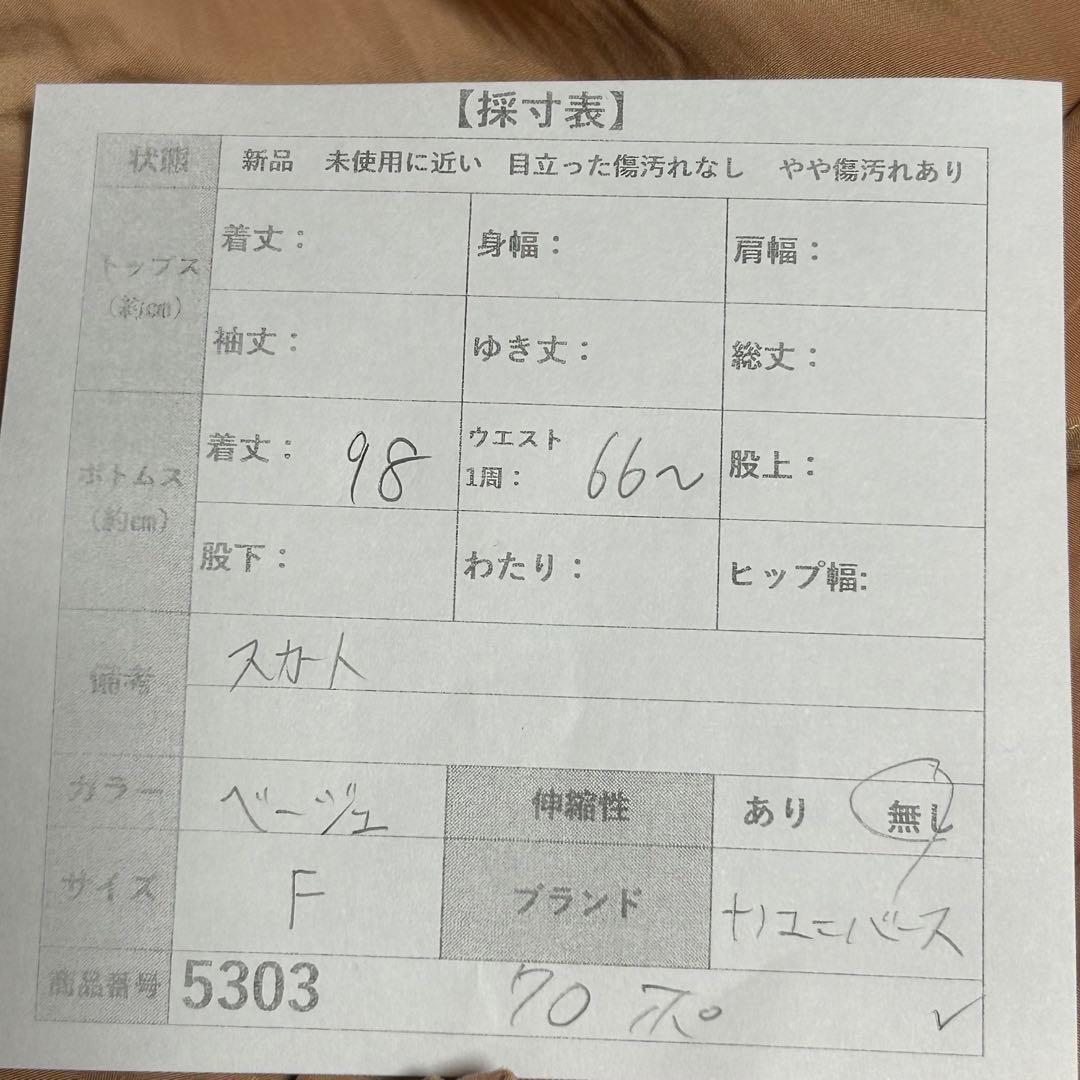 【採寸表】
状態 新品 未使用に近い 目立った傷汚れなし やや傷汚れあり
トップス (約cm) 着丈： 身幅： 肩幅：
袖丈： ゆき丈： 総丈：
ボトムス (約cm) 着丈： 98 ウエスト 1周： 66〜 股上：
股下： わたり： ヒップ幅:
備考 スカート
カラー ベージュ 伸縮性 あり 無し
サイズ F ブランド ナノユニバース
商品番号 5303 70